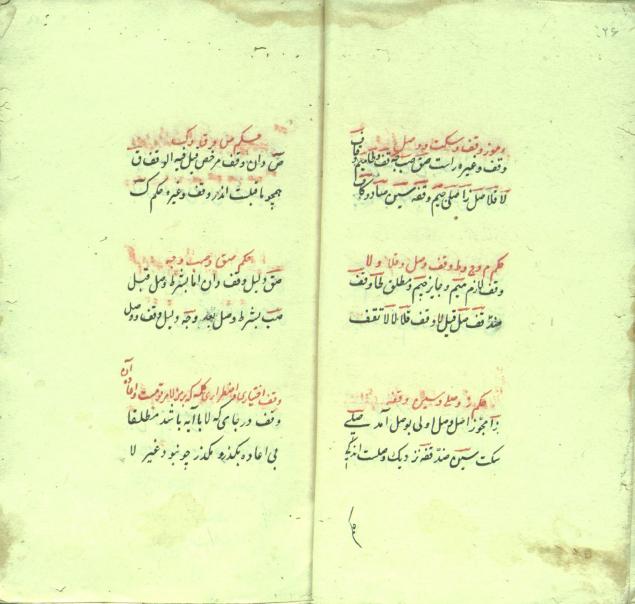 ۲۶
رموز وقف و سکت و وصل
وقف و غیره راست صق صب جه قف طا میم
لا قلا صل زا صلی جیم وقفه سین صاد و کاف
حکم م و ج و ط و قف و صل و قلا و لا
وقف لازم میم و جایز جیم و مطلق طا و قف
قف صل قیل لا وقف قلا طا لا تقف
حکم ز و صلی و سین و قفه
زا مجوز اصل وصل اولی بوصل آمد صلی
سکت سین ضد قفه نزدیک وصلست
حکم ص و ق و ک
ص دان وقف مرخص قیل فیه الوقف ق
همچو ما قبلست اندر وقف و غیره حکم ک
حکم صق و صب و جه
صق دلیل وقف دان اما بشرط وصل قبل
صب بشرط وصل بعد و جه دلیل وقف و وصل
وقف اختیاری و اضطراری کلمه که
وقف در جای که لا با آیه باشد مطلقا
بی اعاده بگذرو مگذر چو نبود غیر لا